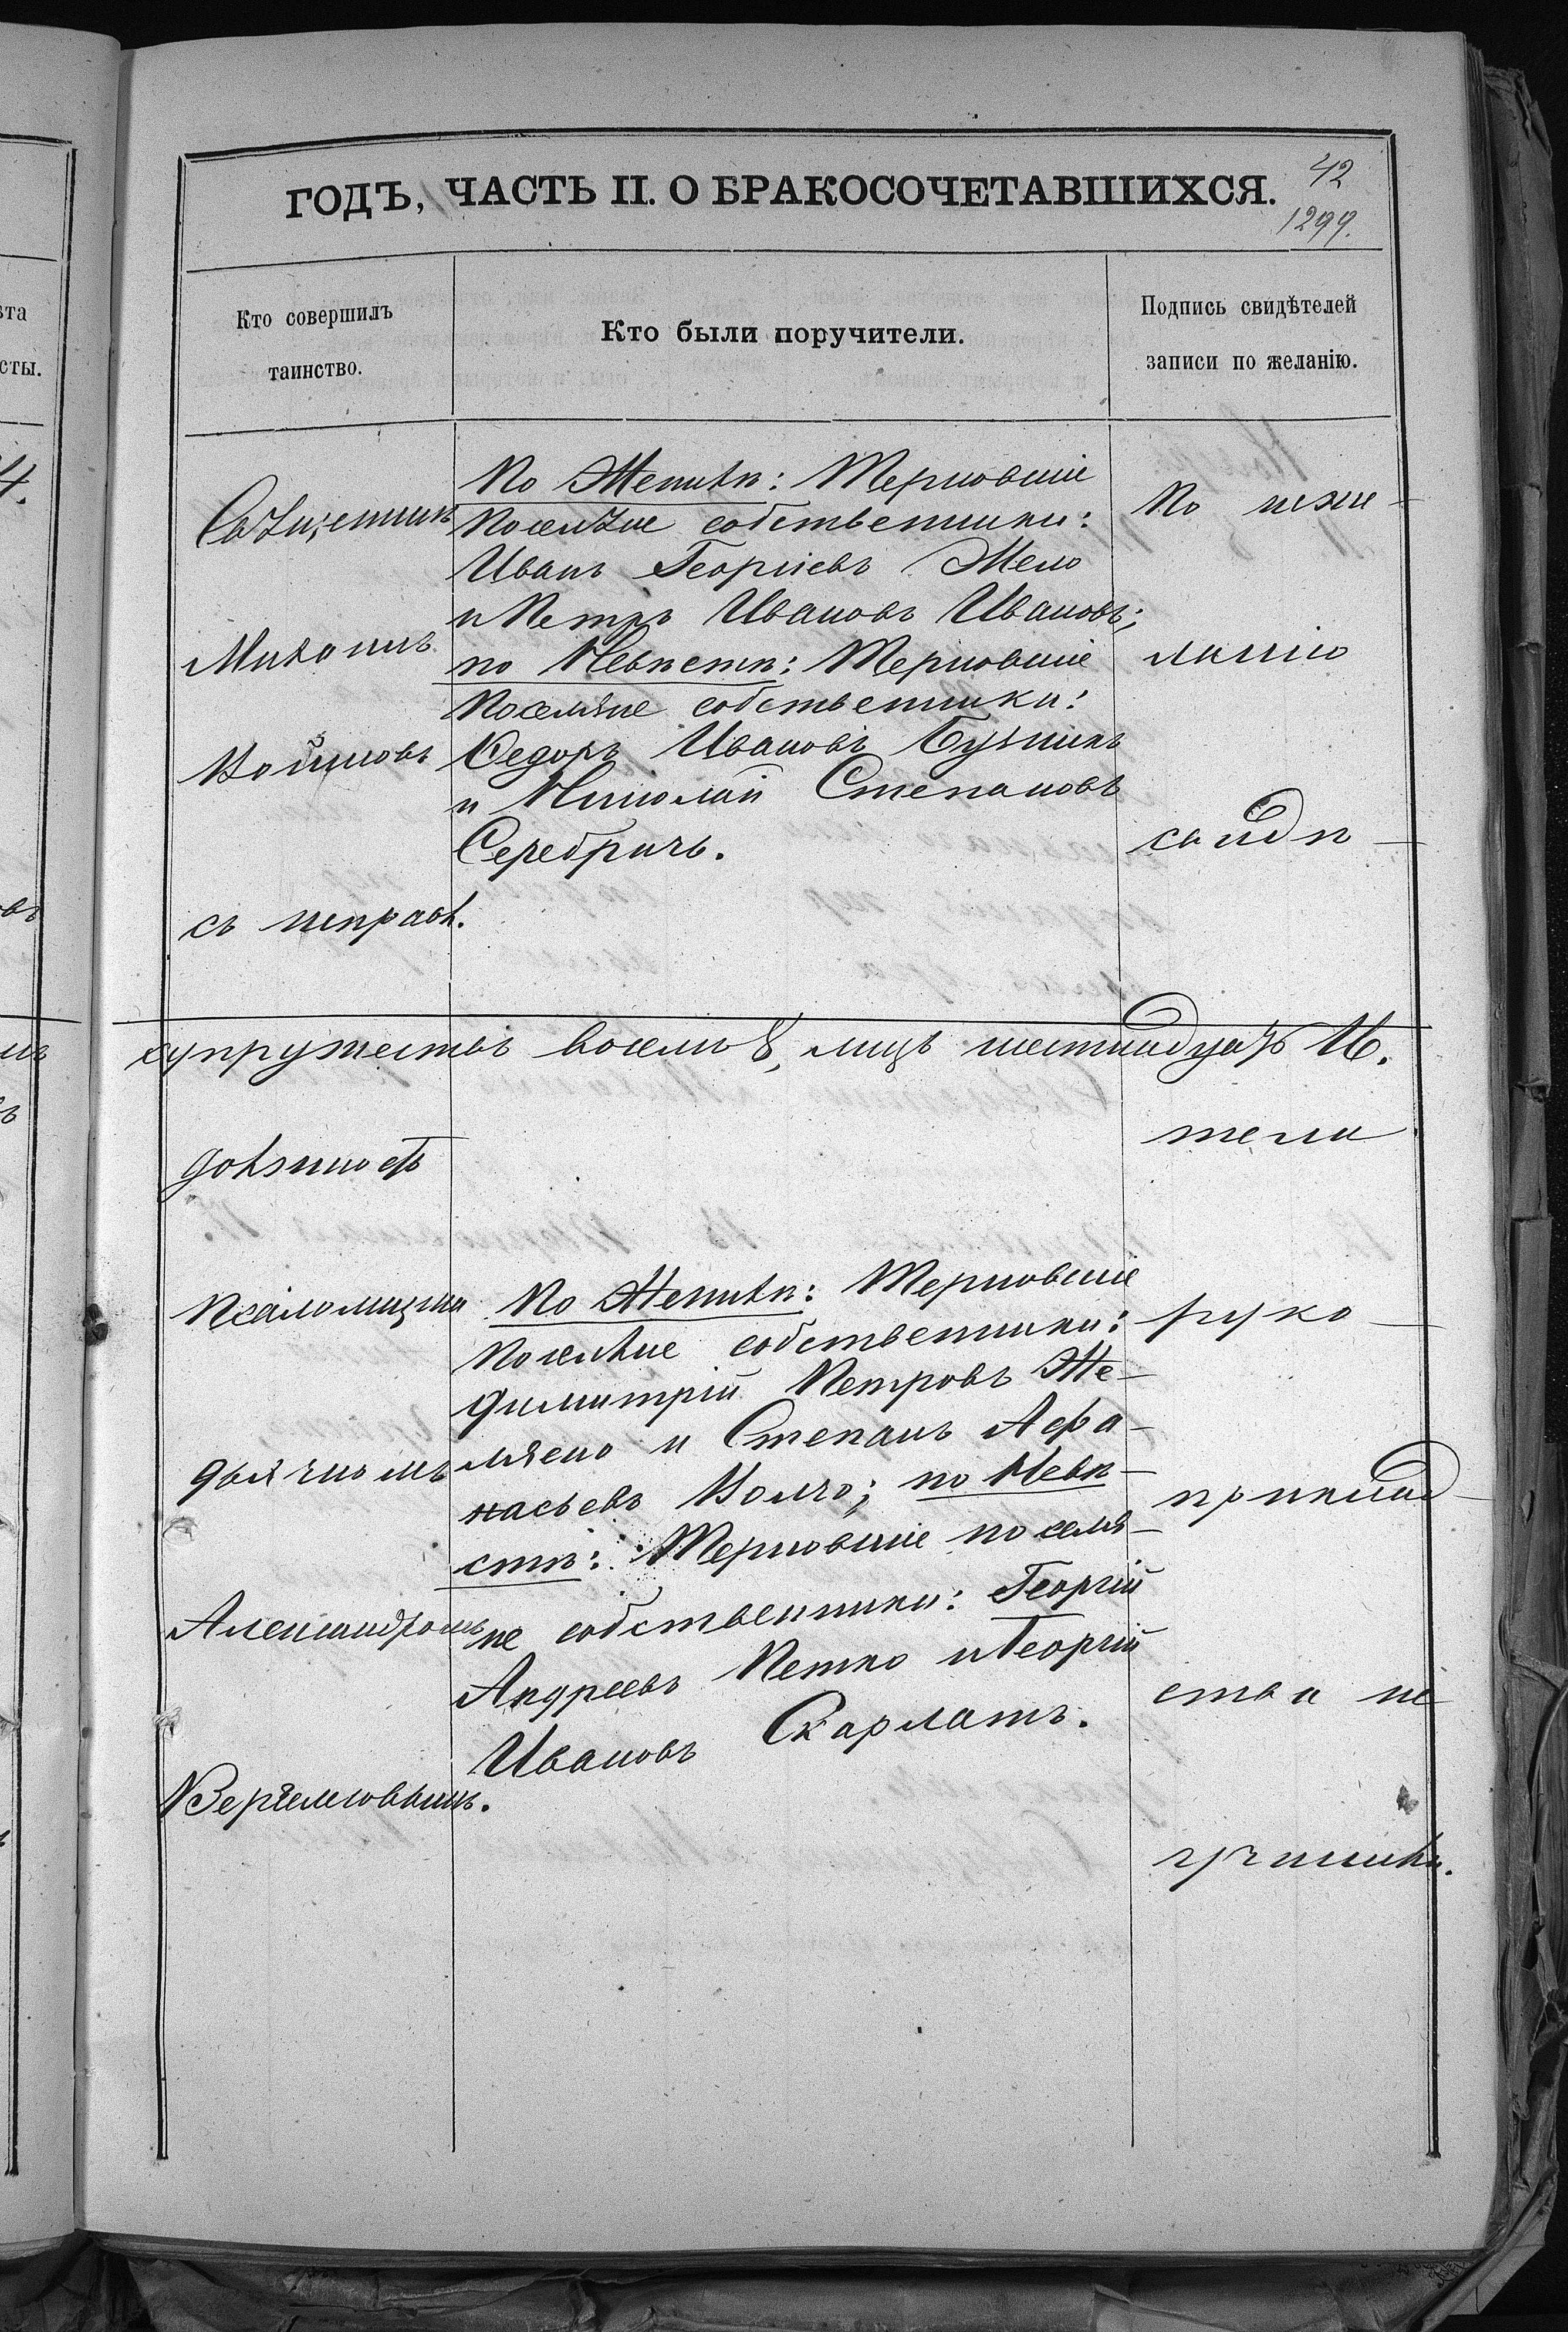 42
ГОДЪ, ЧАСТЬ II. О БРАКОСОЧЕТАВШИХСЯ.
1299.
Кто совершилъ
таинство.
Кто были поручители.
Подпись свидѣтелей
записи по желанію.
ѣта
сты.
4.
Священникъ
Михаилъ
Войновъ
съ исправл.
По Женихѣ: Терновскіе
поселяне собственники:
Иванъ Георгіевъ Жело
и Петръ Ивановъ Ивановъ;
по Невѣстѣ: Терновскіе
поселяне собственники:
Ѳедоръ Ивановъ
и Николай Степановъ
Серебричъ.
По неже-
ланію
свидѣ-
супружествъ восемь 8, лицъ шестнадцать 16.
должность
псаломщика
дьячкомъ
Александромъ
По Женихѣ: Терновскіе
поселяне собственники:
Димитрій Петровъ Же-
ляско и Степанъ Афа-
насьевъ Волчо; по Невѣ-
стѣ: Терновскіе поселя-
не собственники: Георгій
Андреевъ Петко и Георгій
Ивановъ Скарлатъ.
тели
руко-
приклад-
ства не
учинили.